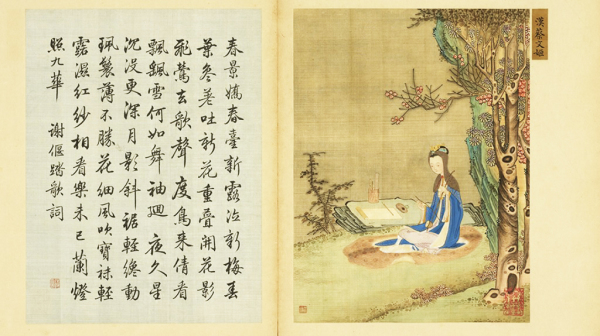 漢蔡文姬
春景嬌春臺新露泣新梅春
葉參差吐新花重疊開花影
飛鶯去歌聲度鳥來倩看
飄飄雪何如舞袖迴 夜久星
沉没更深月影斜裙輕纔動
珮鬟薄不勝花細風吹寶袜輕
露濕紅紗相看樂未已蘭燈
照九華 謝偃踏歌詞